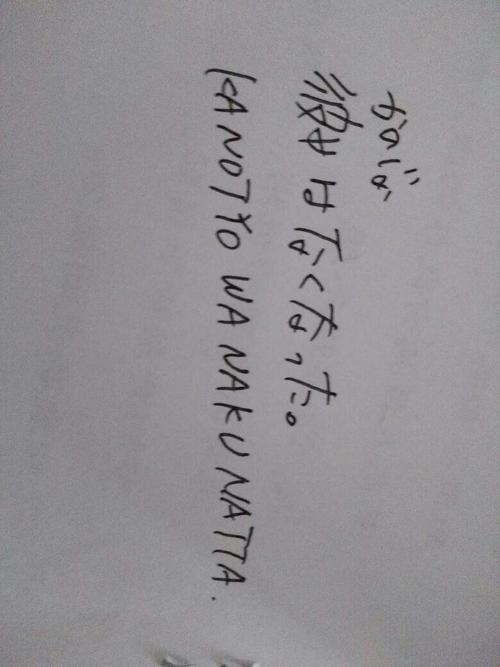 かのじょ
彼女はなくなった。
KANOTYO WA NAKU NATTA.